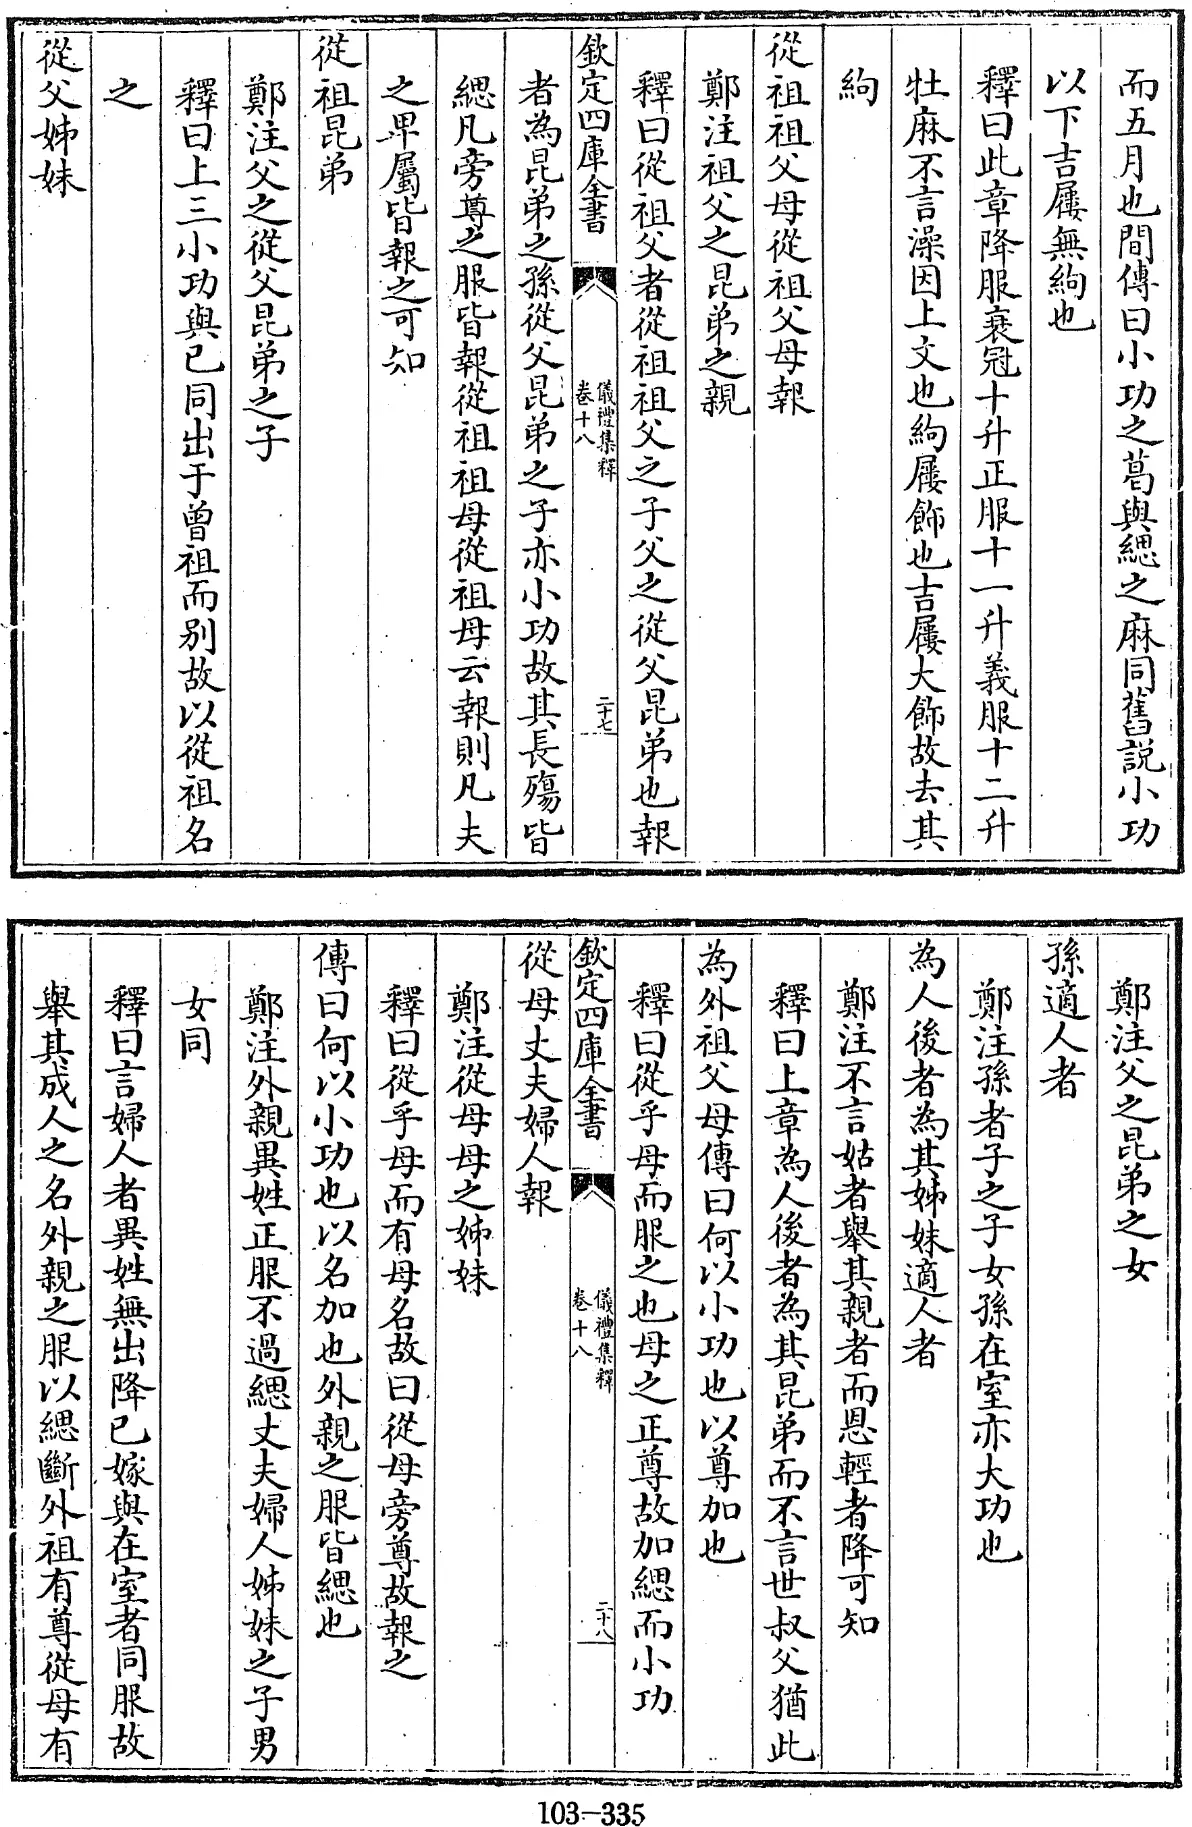 而五月也間傳曰小功之葛與緦之麻同舊説小功
以下吉屨無絇也
釋曰此章降服衰冠十升正服十一升義服十二升
牡麻不言澡因上文也絇屨飾也吉屨大飾故去其
絇
從祖祖父母從祖父母報
鄭注祖父之昆弟之親
釋曰從祖父者從祖祖父之子父之從父昆弟也報
欽定四庫全書
儀禮集釋
卷十八
二十七
者為昆弟之孫從父昆弟之子亦小功故其長殤皆
緦凡旁尊之服皆報從祖祖母從祖母云報則凡夫
之卑屬皆報之可知
從祖昆弟
鄭注父之從父昆弟之子
釋曰上三小功與已同出于曽祖而别故以從祖名
之
從父姊妹
鄭注父之昆弟之女
孫適人者
鄭注孫者子之子女孫在室亦大功也
為人後者為其姊妹適人者
鄭注不言姑者舉其親者而恩輕者降可知
釋曰上章為人後者為其昆弟而不言世叔父猶此
為外祖父母傳曰何以小功也以尊加也
釋曰從乎母而服之也母之正尊故加緦而小功
欽定四庫全書
儀禮集釋
卷十八
二十八
從母丈夫婦人報
鄭注從母母之姊妹
釋曰從乎母而有母名故曰從母旁尊故報之
傳曰何以小功也以名加也外親之服皆緦也
鄭注外親異姓正服不過緦丈夫婦人姊妹之子男
女同
釋曰言婦人者異姓無出降已嫁與在室者同服故
舉其成人之名外親之服以緦斷外祖有尊從母有
103-335